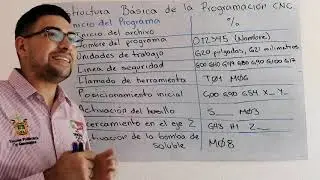 structura Básica de la Programación CNC
nicio del Programa
nicio del archivo %
Nombre del programa O12345 (Nombre)
Unidades de trabajo G20 pulgadas, G21 milímetros
Línea de seguridad
Llamado de herramienta TØ1 MØ6
Posicionamiento inicial GØØ G90 G54 X_ Y_
Activación del husillo S__ MØ3
cercamiento en el eje Z G43 H1 Z__
ctivación de la bomba de
soluble MØ8